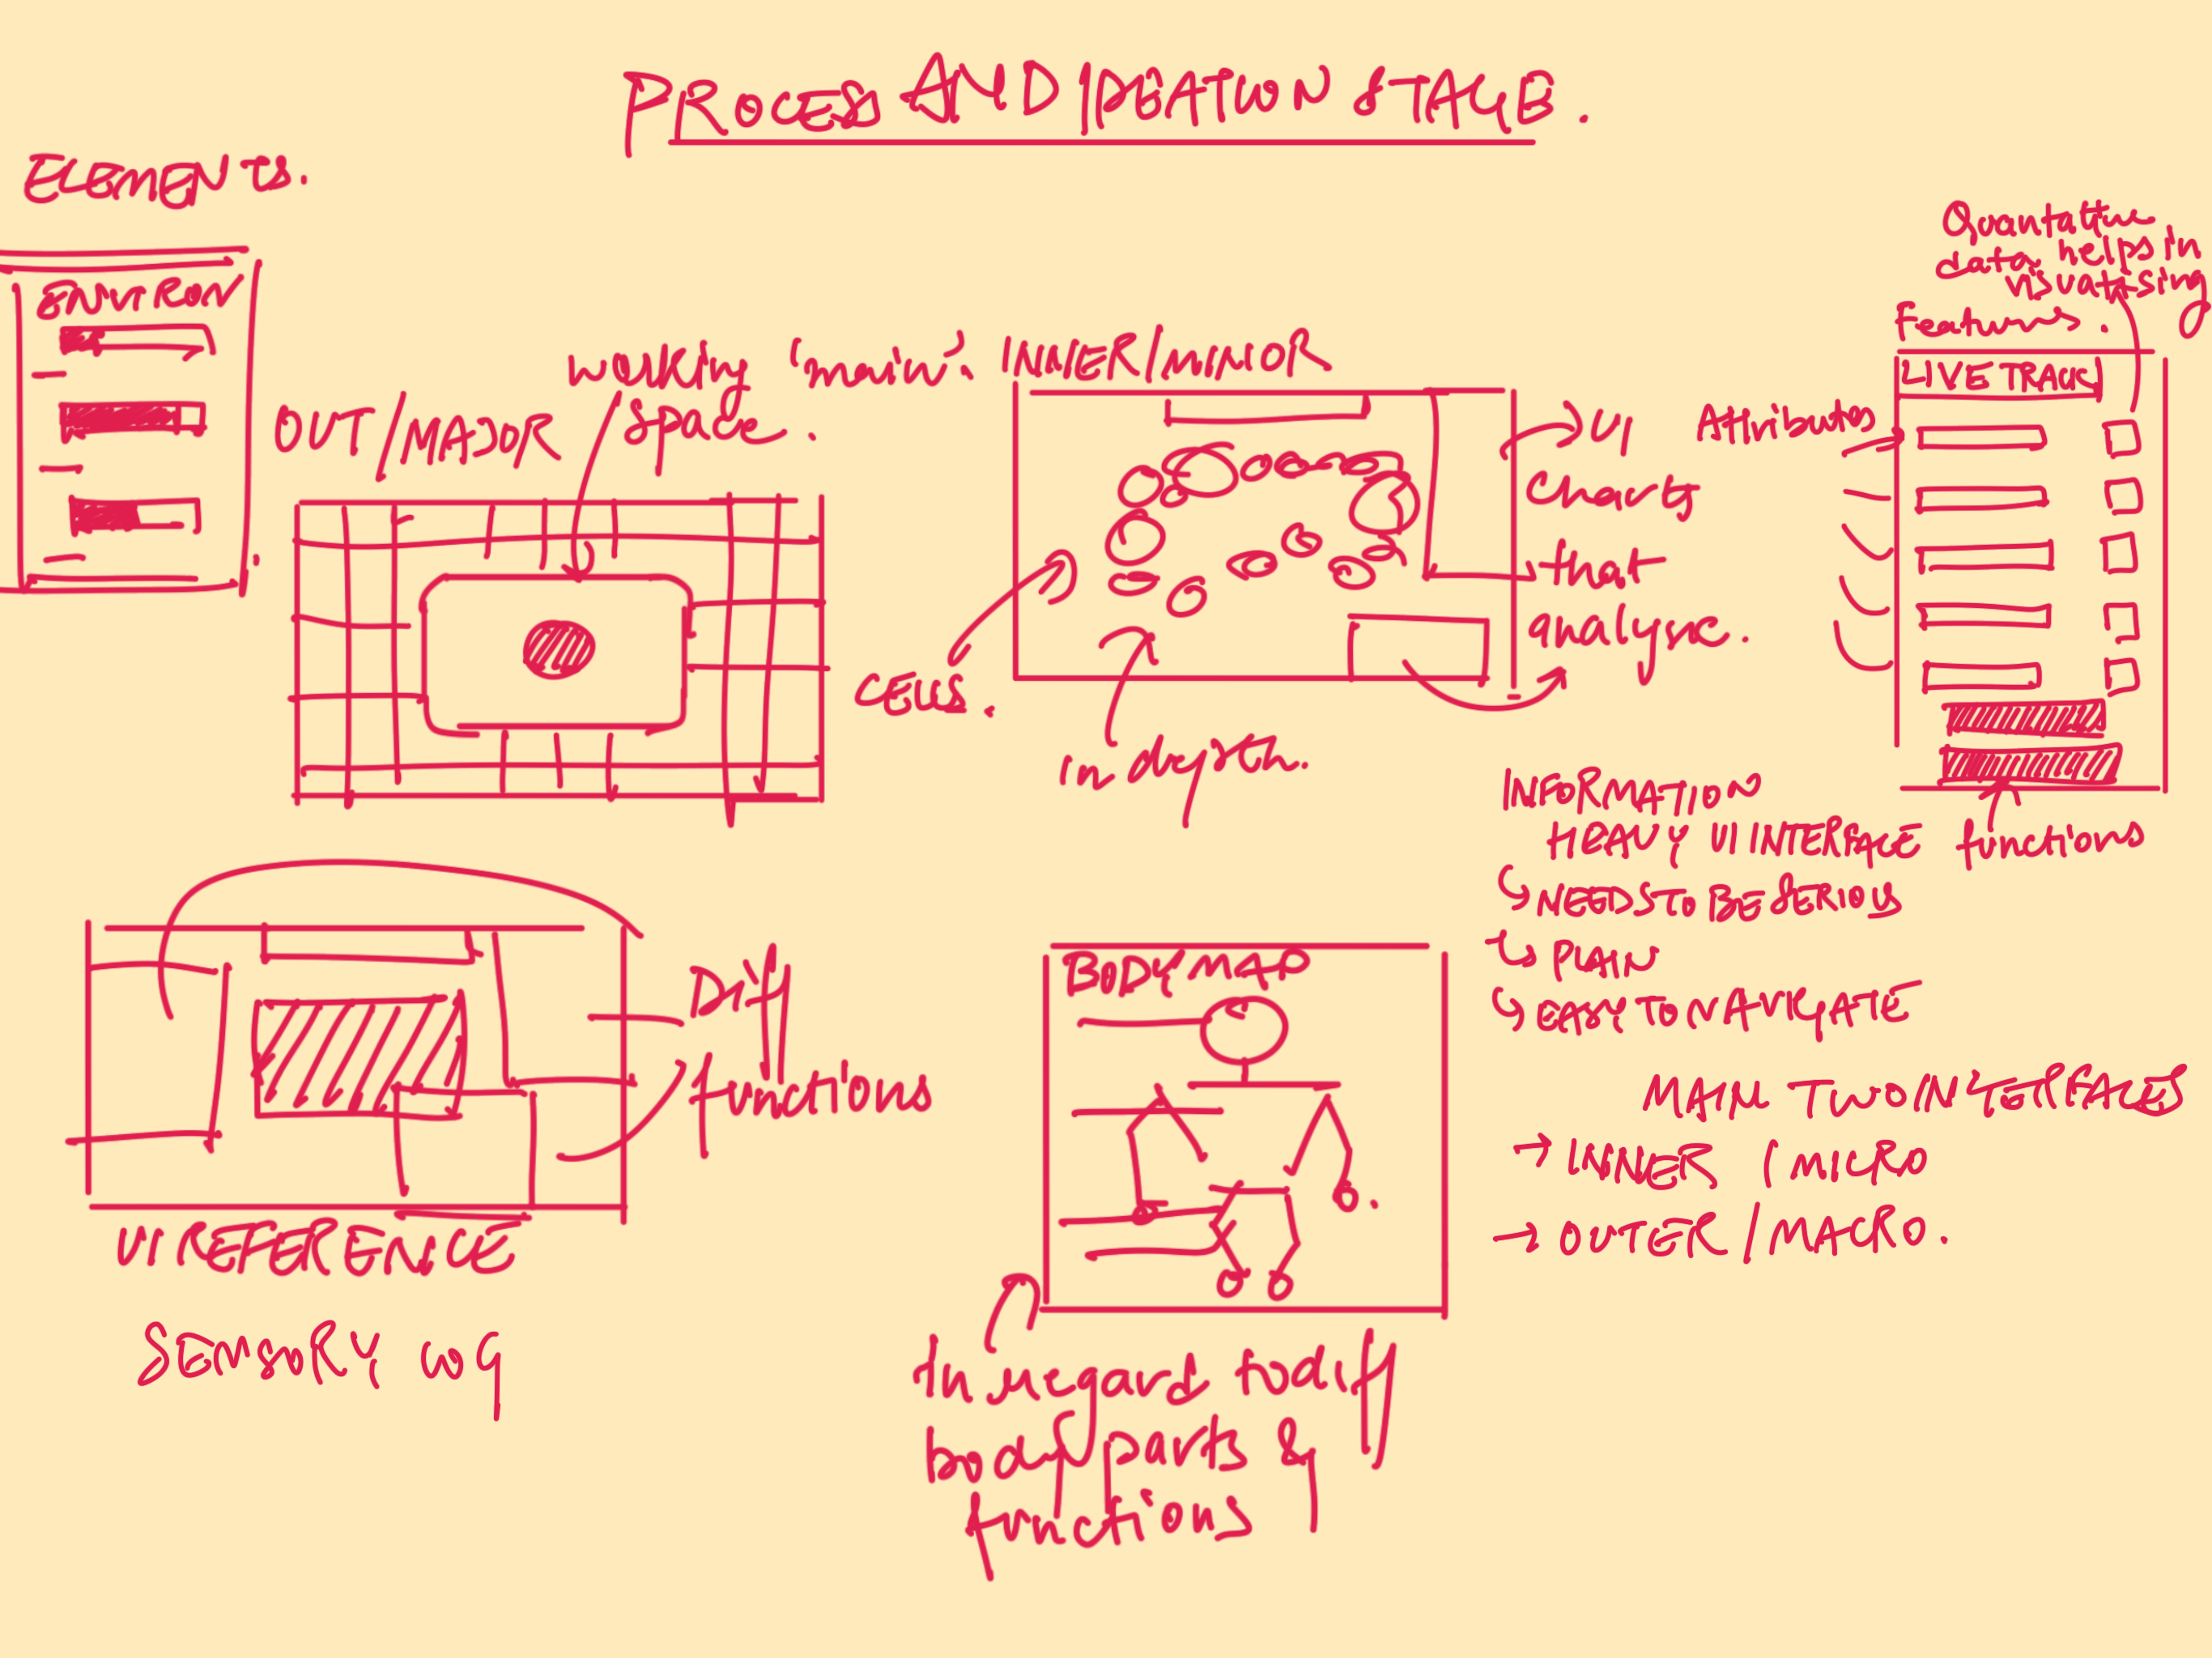 PROCESS AND IDEATION STAGE.
ELEMENTS.
ENVIRON
OUT/MAJOR
working 'main'.
space.
INNER/MINIOR
CELLS.
in depth.
UI
Charts
that
analyse.
Attributes
Quantative
data helps in
visualising
features.
LIVE TRACK
functions
INFORMATION
HEAVY UI INTERFACE
NEEDS TO BE SERIOUS
PLAIN
EASY TO NAVIGATE
MAIN TWO INTERFACES
→ INNER / MICRO
→ OUTER / MACRO.
Diff
functions
UI REFERENCE
SENSORY LOG
BODY MAP
In regard to diff
body parts &
functions